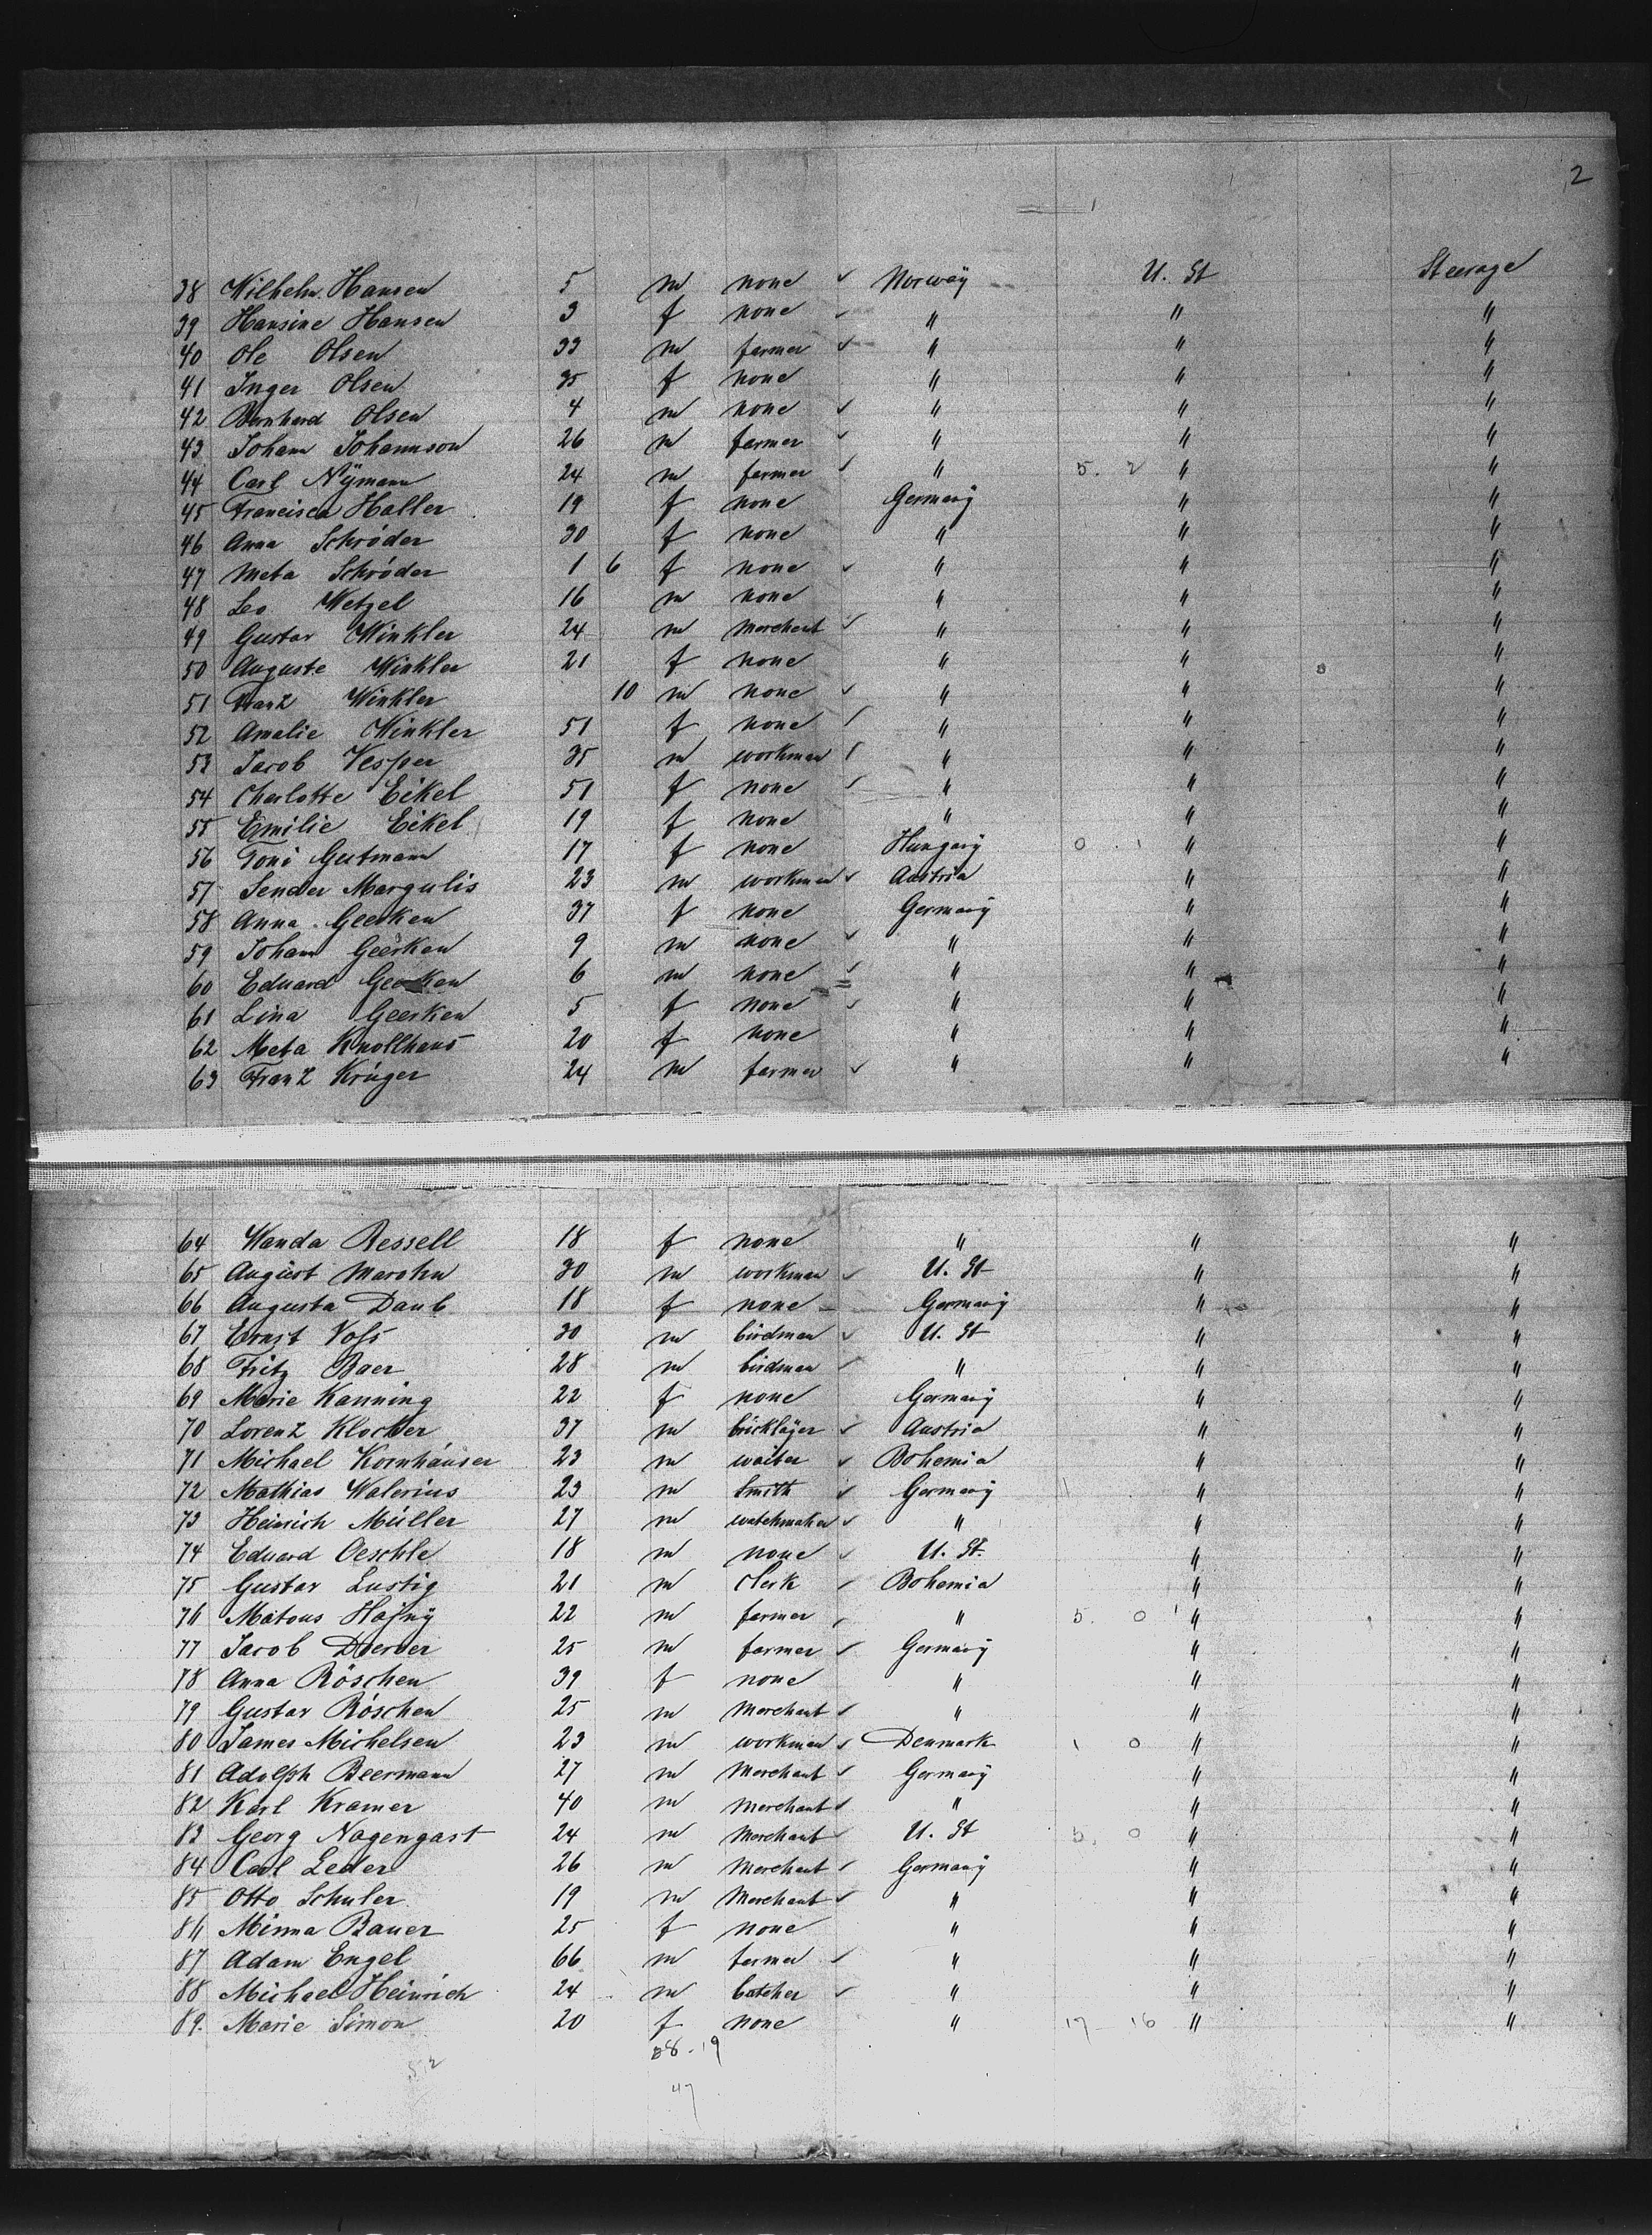 2
38 Wilhelm Hansen 5 m none ✓ Norway U. St Steerage
39 Hansine Hansen 3 f none ✓ " " "
40 Ole Olsen 33 m farmer ✓ " " "
41 Inger Olsen 35 f none " " "
42 Bernhard Olsen 4 m none ✓ " " "
43 Johann Johannson 26 m farmer ✓ " " "
44 Carl Nÿmann 24 m farmer ✓ " 5. 2 " "
45 Francisca Haller 19 f none Germany " "
46 Anna Schröder 30 f none " " "
47 Meta Schröder 1 6 f none ✓ " " "
48 Leo Wetzel 16 m none " " "
49 Gustav Winkler 24 m Merchant ✓ " " "
50 Auguste Winkler 21 f none " " "
51 Franz Winkler 10 m none ✓ " " "
52 Amalie Winkler 51 f none ✓ " " "
53 Jacob Vesper 35 m workman ✓ " " "
54 Charlotte Eikel 51 f none ✓ " " "
55 Emilie Eikel 19 f none " " "
56 Toni Gutmann 17 f none Hungary 0 . 1 " "
57 Sender Margulis 23 m workman ✓ Austria " "
58 Anna Geerken 37 f none Germany " "
59 Johann Geerken 9 m none ✓ " " "
60 Eduard Geerken 6 m none ✓ " " "
61 Lina Geerken 5 f none ✓ " " "
62 Meta Knollhaus 20 f none " " "
63 Franz Krüger 24 m farmer ✓ " " "
64 Wanda Ressell 18 f none " " "
65 August Marohn 30 m workman ✓ U. St " "
66 Augusta Daub 18 f none Germany " "
67 Ernst Voss 30 m birdman ✓ U. St " "
68 Fritz Baer 28 m birdman ✓ " " "
69 Marie Kanning 22 f none Germany " "
70 Lorenz Klocker 37 m bricklayer ✓ Austria " "
71 Michael Kornhäuser 23 m waiter ✓ Bohemia " "
72 Mathias Walerius 23 m Smith ✓ Germany " "
73 Heinrich Müller 27 m watchmaker ✓ " " "
74 Eduard Oeschle 18 m none ✓ U. St. " "
75 Gustav Lustig 21 m clerk ✓ Bohemia " "
76 Matous Hajny 22 m farmer ✓ " 5. 0 " "
77 Jacob 25 m farmer ✓ Germany " "
78 Anna Röschen 39 f none " " "
79 Gustav Röschen 25 m Merchant ✓ " " "
80 James Michelsen 23 m workman ✓ Denmark 1 0 " "
81 Adolph Beermann 27 m Merchant ✓ Germany " "
82 Karl Kramer 40 m Merchant ✓ " " "
83 Georg Nagengast 24 m Merchant ✓ U. St 5. 0 " "
84 Carl Leder 26 m Merchant ✓ Germany " "
85 Otto Schuler 19 m Merchant ✓ " " "
86 Minna Bauer 25 f none " " "
87 Adam Engel 66 m farmer ✓ " " "
88 Michael Heinrich 24 m butcher ✓ " " "
89. Marie Simon 20 f none " 17 - 16 " "
52 28 - 19
47